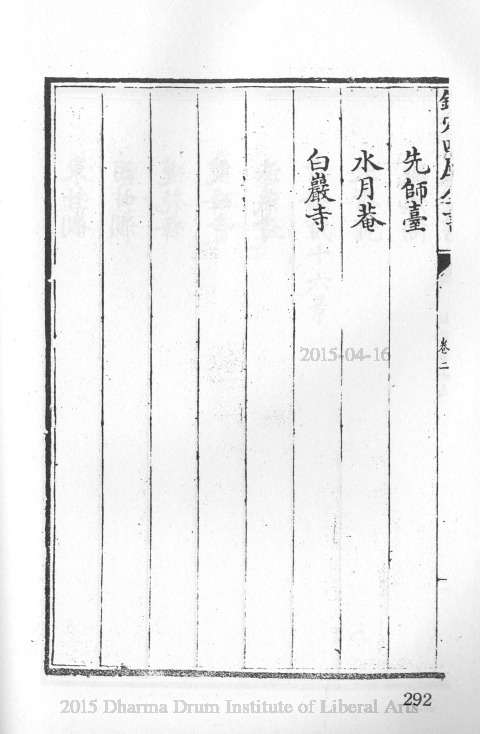 欽定四庫全書
卷二
先師臺
水月菴
白巖寺
2015-04-16
292
2015 Dharma Drum Institute of Liberal Arts